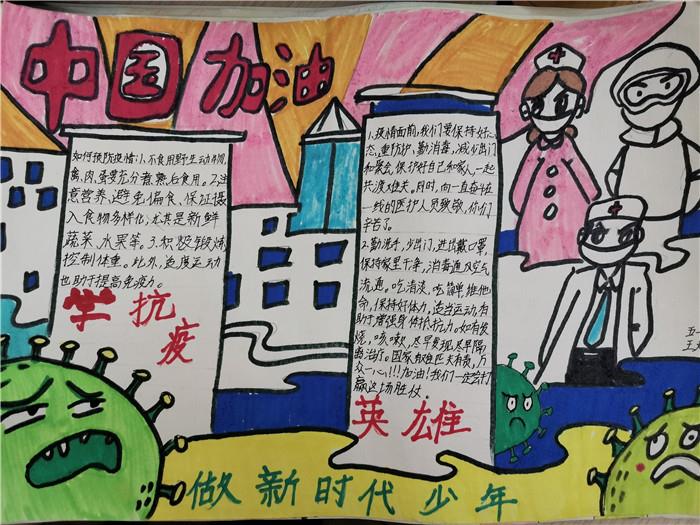 中国加油
如何预防疫情1、不食用野生动物,
禽、肉、蛋要充分煮熟后食用。2.注
意营养,避免偏食、保证摄
入食物多样化,尤其是新鲜
蔬菜、水果等。3.积极锻炼,
控制体重。此外,适度运动
也助于提高免疫力。
学抗
疫
1.疫情面前,我们要保持好心
态,重防护,勤消毒,减少出门
和聚会,保护好自己和家人一起
共渡难关。同时,向一直奋斗在
一线的医护人员致敬,你们
辛苦了。
2.勤洗手,少出门,进出戴口罩,
保持家里干净,消毒通风空气
流通。吃清淡,吃简单,维他
命,保持好体力,适当运动,有
助于增强身体抵抗力。如有发
烧,咳嗽,尽早发现尽早隔
离治疗。国家有难匹夫有责,万
众一心!!!加油!我们一定会打
赢这场胜仗。
英雄
做新时代少年
五一
王